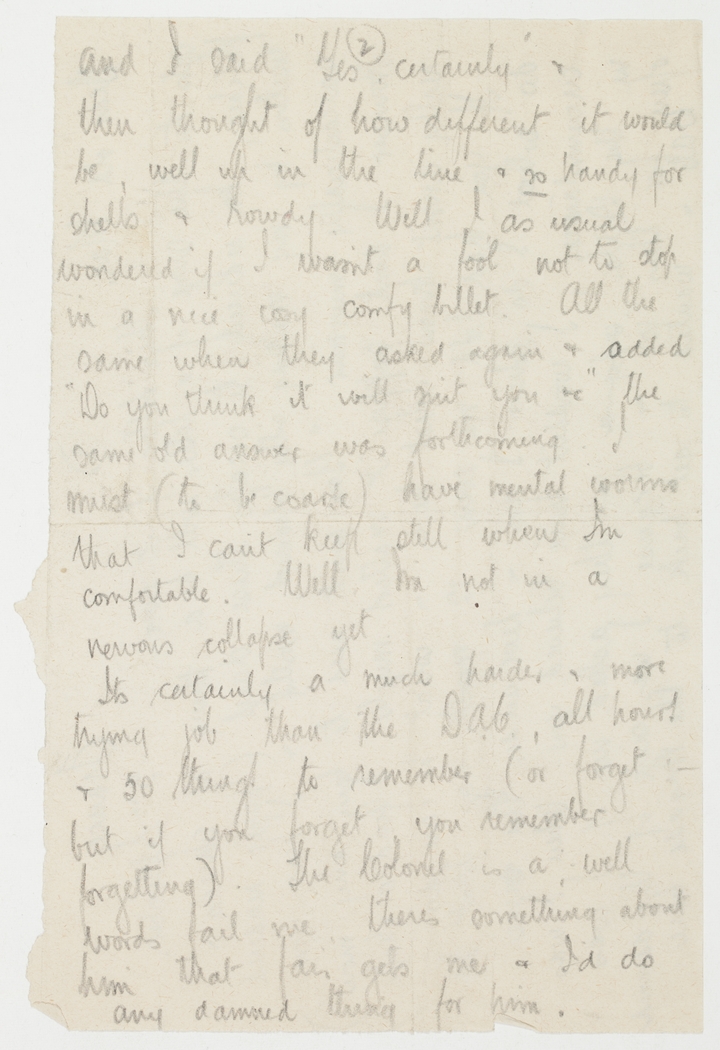 2
and I said "Yes, certainly" &
then thought of how different it would
be, well up in the line & so handy for
shells & howdy. Well I as usual
wondered if I wasn't a fool not to stop
in a nice cosy comfy billet. All the
same when they asked again & added
"Do you think it will suit you &c" the
same old answer was forthcoming. I
must (to be coarse) have mental worms
that I can't keep still when I'm
comfortable. Well I'm not in a
nervous collapse yet
Its certainly a much harder & more
trying job than the D.A.C., all hours
& 50 things to remember (or forget :—
but if you forget you remember
forgetting). The Colonel is a well
words fail me theres something about
him that fair gets me & I'd do
any damned thing for him.